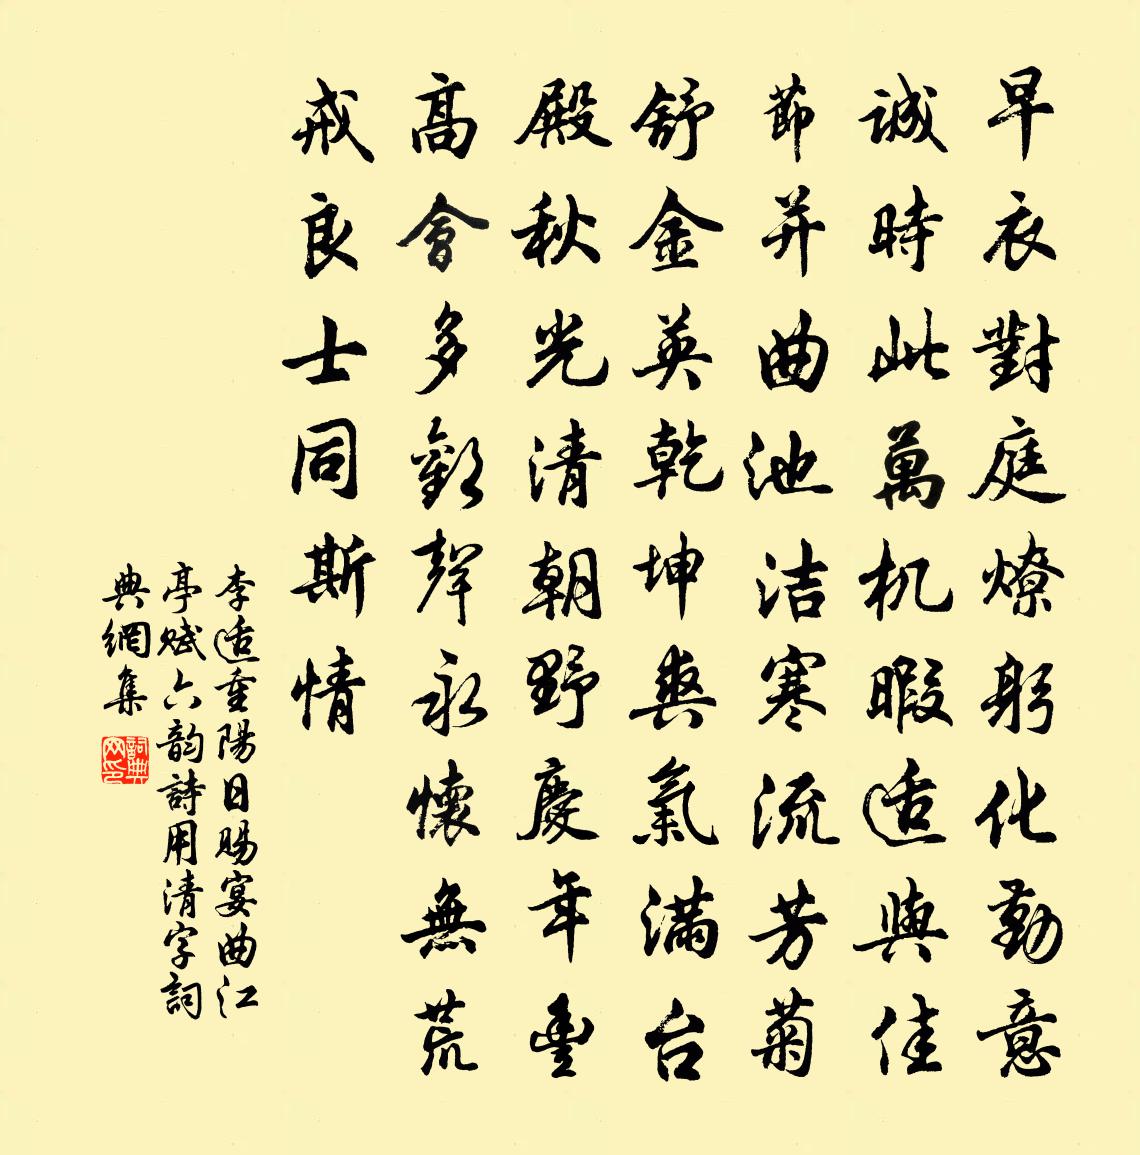 早衣對庭燎躬化勤意
誠時此萬机暇适與佳
節并曲池洁寒流芳菊
舒金英乾坤爽氣滿台
殿秋光清朝野慶年豐
高會多歡聲永懷無荒
戒良士同斯情
李适重陽日賜宴曲江
亭賦六韵詩用清字詞
典網集
詞典网印